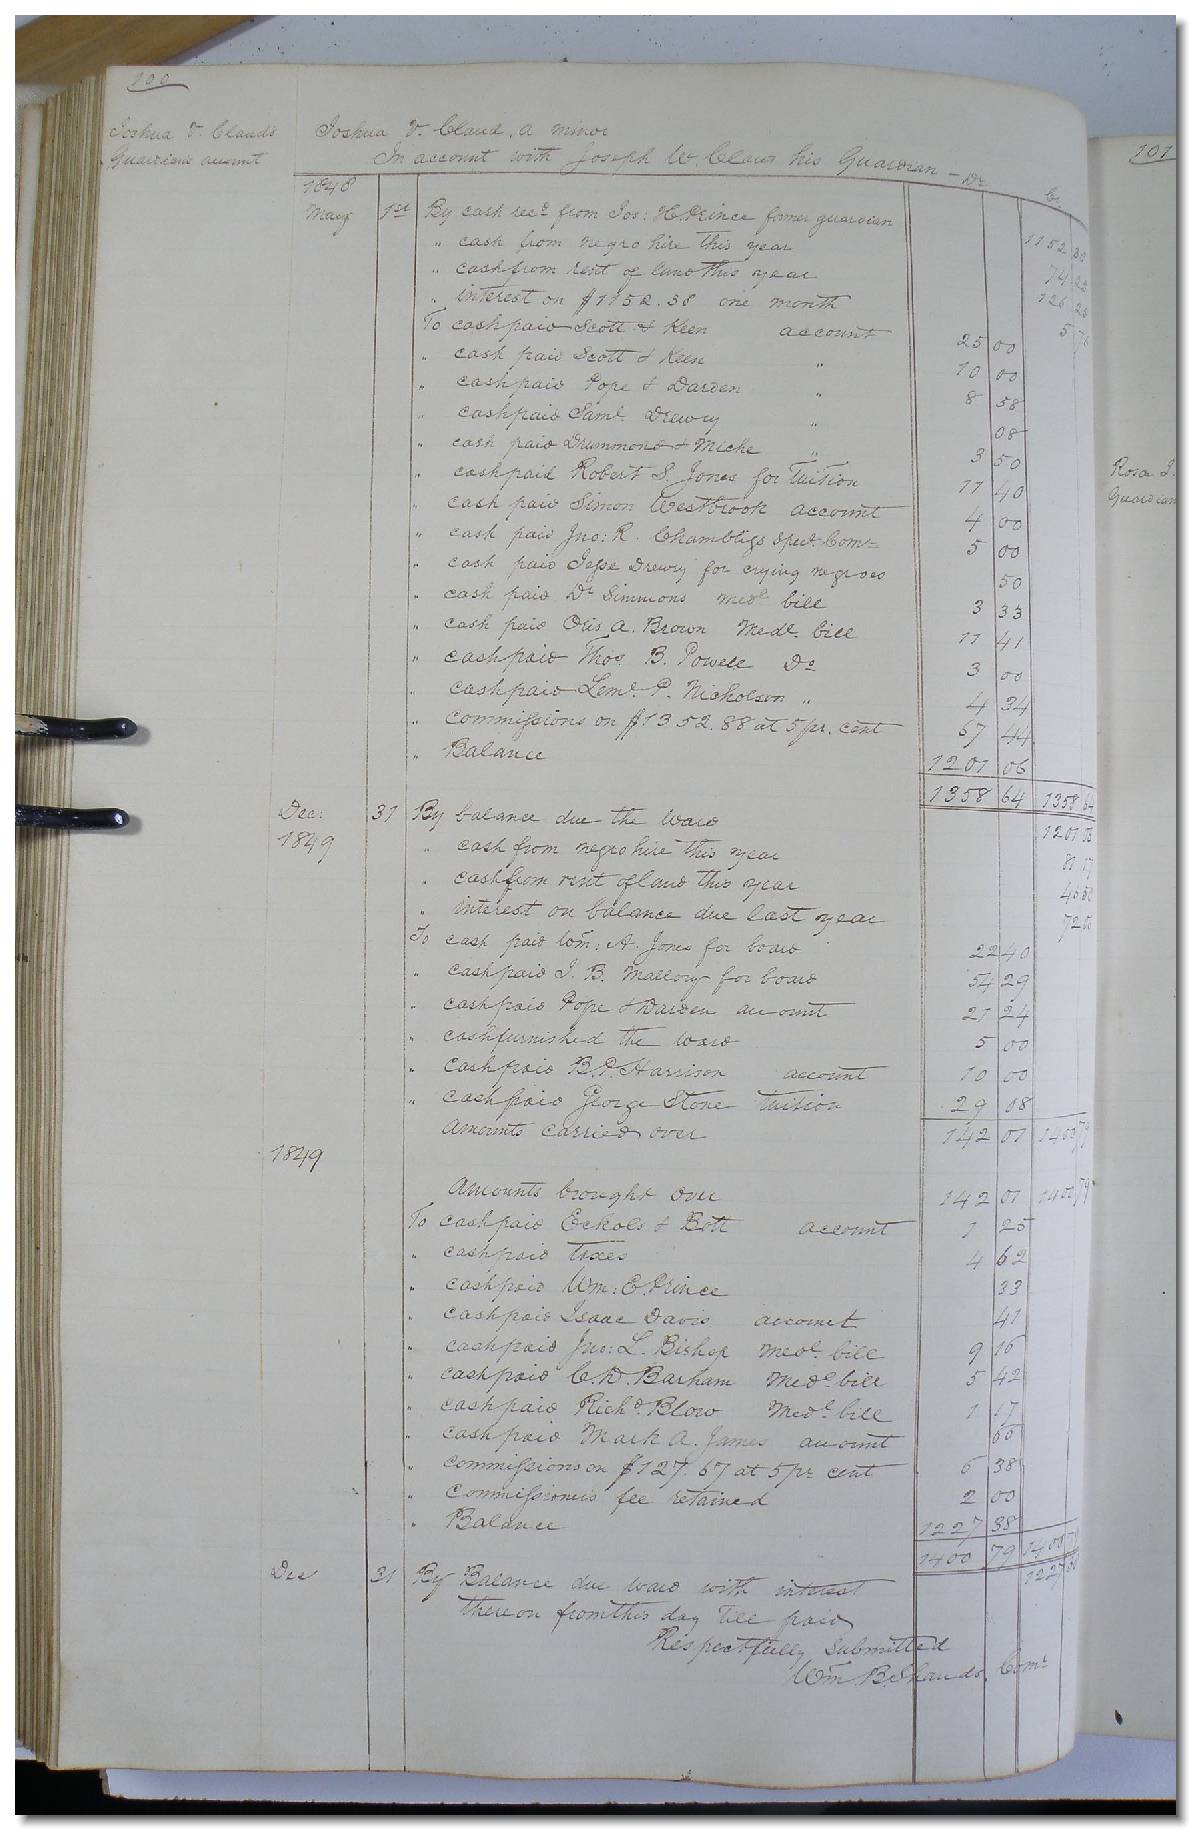 100
Joshua V. Clauds
Guardians account
Joshua V. Claud, a minor
In account with Joseph W. Claud his Guardian - Dr Cr
1848
May 1st By cash recd from Jos: H. Prince former guardian 1152 38
" cash from negro hire this year 74 22
" cash from rent of land this year 126 28
" interest on $1152.38 one month 5 76
To cash paid Scott & Keen account 25 00
" cash paid Scott & Keen " 10 00
" cash paid Pope & Darden " 8 58
" cash paid Saml. Drewry " 08
" cash paid Drummond & Miche " 3 50
" cash paid Robert S. Jones for Tuition 11 40
" cash paid Simon Westbrook account 4 00
" cash paid Jno: R. Chambliss Specl. Comr 5 00
" cash paid Jesse Drewry for crying negroes 50
" cash paid Dr Simmons medl bill 3 33
" cash paid Otis A. Brown Medl. bill 11 41
" cash paid Thos. B. Powell Do 3 00
" cash paid Leml. P. Nicholson " 4 34
" commissions on $1352.88 at 5 pr. cent 67 44
" Balance 1201 06
1358 64 1358 64
Dec: 31 By balance due the ward 1201 06
1849 " cash from negro hire this year
" cash from rent of land this year
" interest on balance due last year 72 06
To cash paid Wm: A. Jones for board 22 40
" cash paid J. B. Mallory for board 54 29
" cash paid Pope & Darden account 21 24
" cash furnished the ward 5 00
" cash paid B. P. Harrison account 10 00
" cash paid George Stone Tuition 29 08
Amounts carried over 142 01 1400 79
1849
Amounts brought over 142 01 1400 79
To cash paid Eckols & Bott account 1 25
" cash paid Taxes 4 62
" cash paid Wm: E. Prince 33
" cash paid Isaac Davis account 41
" cash paid Jno: L. Bishop Medl. bill 9 16
" cash paid C. D. Barham Medl. bill 5 42
" cash paid Richd. Blow Medl. bill 1 17
" cash paid Mark A. James account 66
" commissions on $127.67 at 5 pr cent 6 38
" Commissioners fee retained 2 00
" Balance 1227 38
1400 79 1400 79
Dec 31 By Balance due ward with interest 1227 38
thereon from this day till paid
Respectfully Submitted
Wm. B. Shands. Comr
101
Rosa J.
Guardian